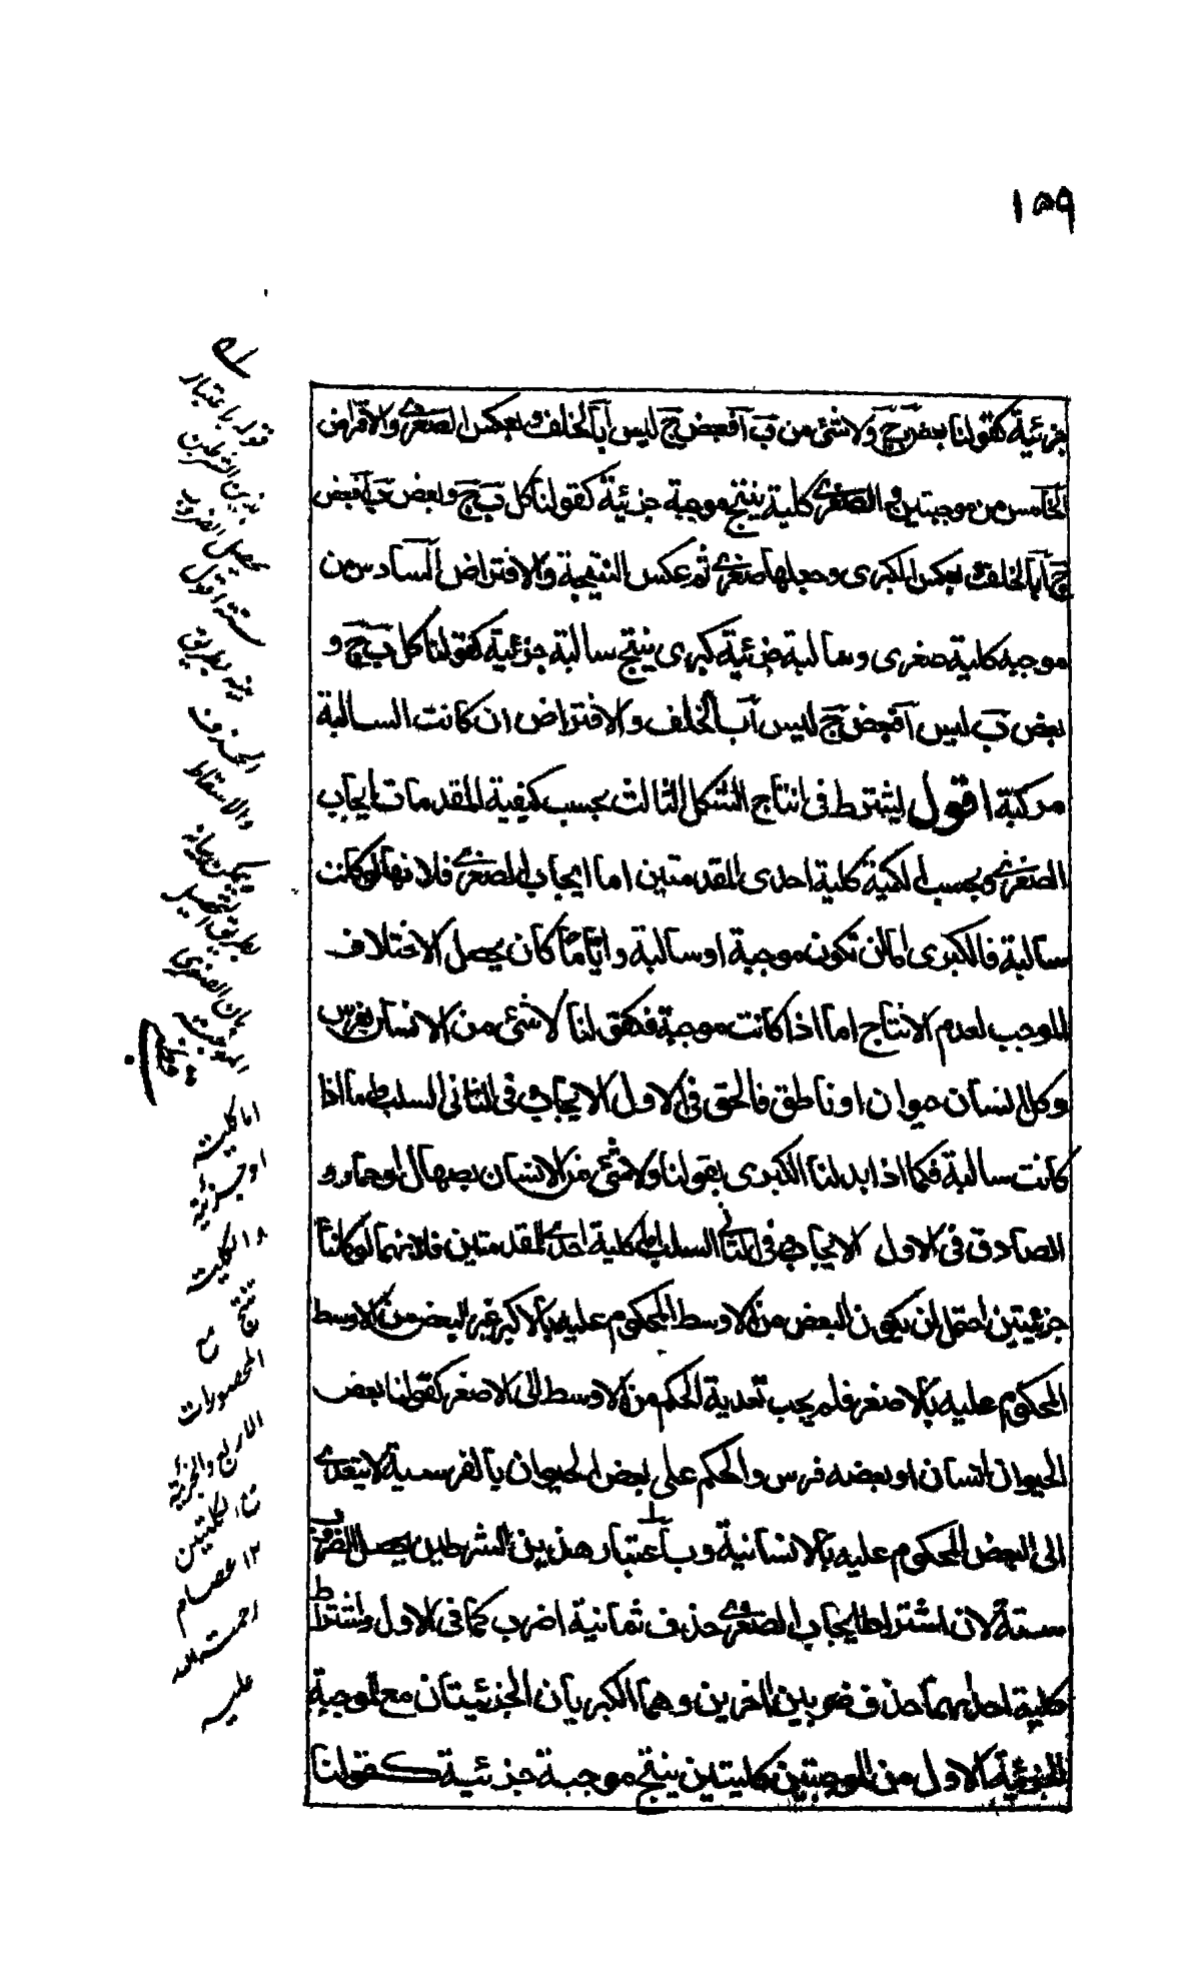 ١٥٩
جزئية كقولنا بعض ب ج ولا شئ من ب آ فبعض ج ليس آ بالخلف وبعكس الصغرى والافتراض
الخامس من موجبتين والصغرى كلية ينتج موجبة جزئية كقولنا كل ب ج وبعض ب آ فبعض
ج آ بالخلف وبعكس الكبرى وجعلها صغرى ثم عكس النتيجة والافتراض السادس من
موجبه كلية صغرى وسالبة جزئية كبرى ينتج سالبة جزئية كقولنا كل ب ج و
بعض ب ليس آ فبعض ج ليس آ بالخلف والافتراض ان كانت السالبة
مركبة اقول يشترط فى انتاج الشكل الثالث بحسب كيفية المقدمات ايجاب
الصغرى وبحسب الكمية كلية احدى المقدمتين اما ايجاب الصغرى فلانها لو كانت
سالبة فالكبرى اما ان تكون موجبة او سالبة وايا ما كان يحصل الاختلاف
الموجب لعدم الانتاج اما اذا كانت موجبة فكقولنا لا شئ من الانسان بفرس
وكل انسان حيوان او ناطق فالحق فى الاول الايجاب وفى الثانى السلب واما اذا
كانت سالبة فكما اذا بدلنا الكبرى بقولنا ولا شئ من الانسان بصهال او حمار و
الصادق فى الاول الايجاب وفى الثانى السلب واما كلية احدى المقدمتين فلانهما لو كانتا
جزئيتين احتمل ان يكون البعض من الاوسط المحكوم عليه بالاكبر غير البعض من الاوسط
المحكوم عليه بالاصغر فلم يجب تعدية الحكم من الاوسط الى الاصغر كقولنا بعض
الحيوان انسان او بعضه فرس والحكم على بعض الحيوان بالفرسية لا يتعدى
الى البعض المحكوم عليه بالانسانية وباعتبار هذين الشرطين يحصل الضروب
ستة لان اشتراط ايجاب الصغرى حذف ثمانية اضرب كما فى الاول واشتراط
كلية احدٰهما حذف ضربين اخرين وهما الكبريان الجزئيتان مع الموجبة
الجزئية الاول من الموجبتين كليتين ينتج موجبة جزئية كقولنا
قوله باعتبار
هذين الشرطين
يحصل الضروب
ستة اقول
بطريق
الحذف
والاسقاط
بطريق التحصيل
بان الصغرى
الموجبة
اما كلية
او جزئية
١٨ الكلية
تنتج
مع
المحصورات
الاربع والجزئية
مع الكليتين
١٢ عصام
رحمة الله
عليه